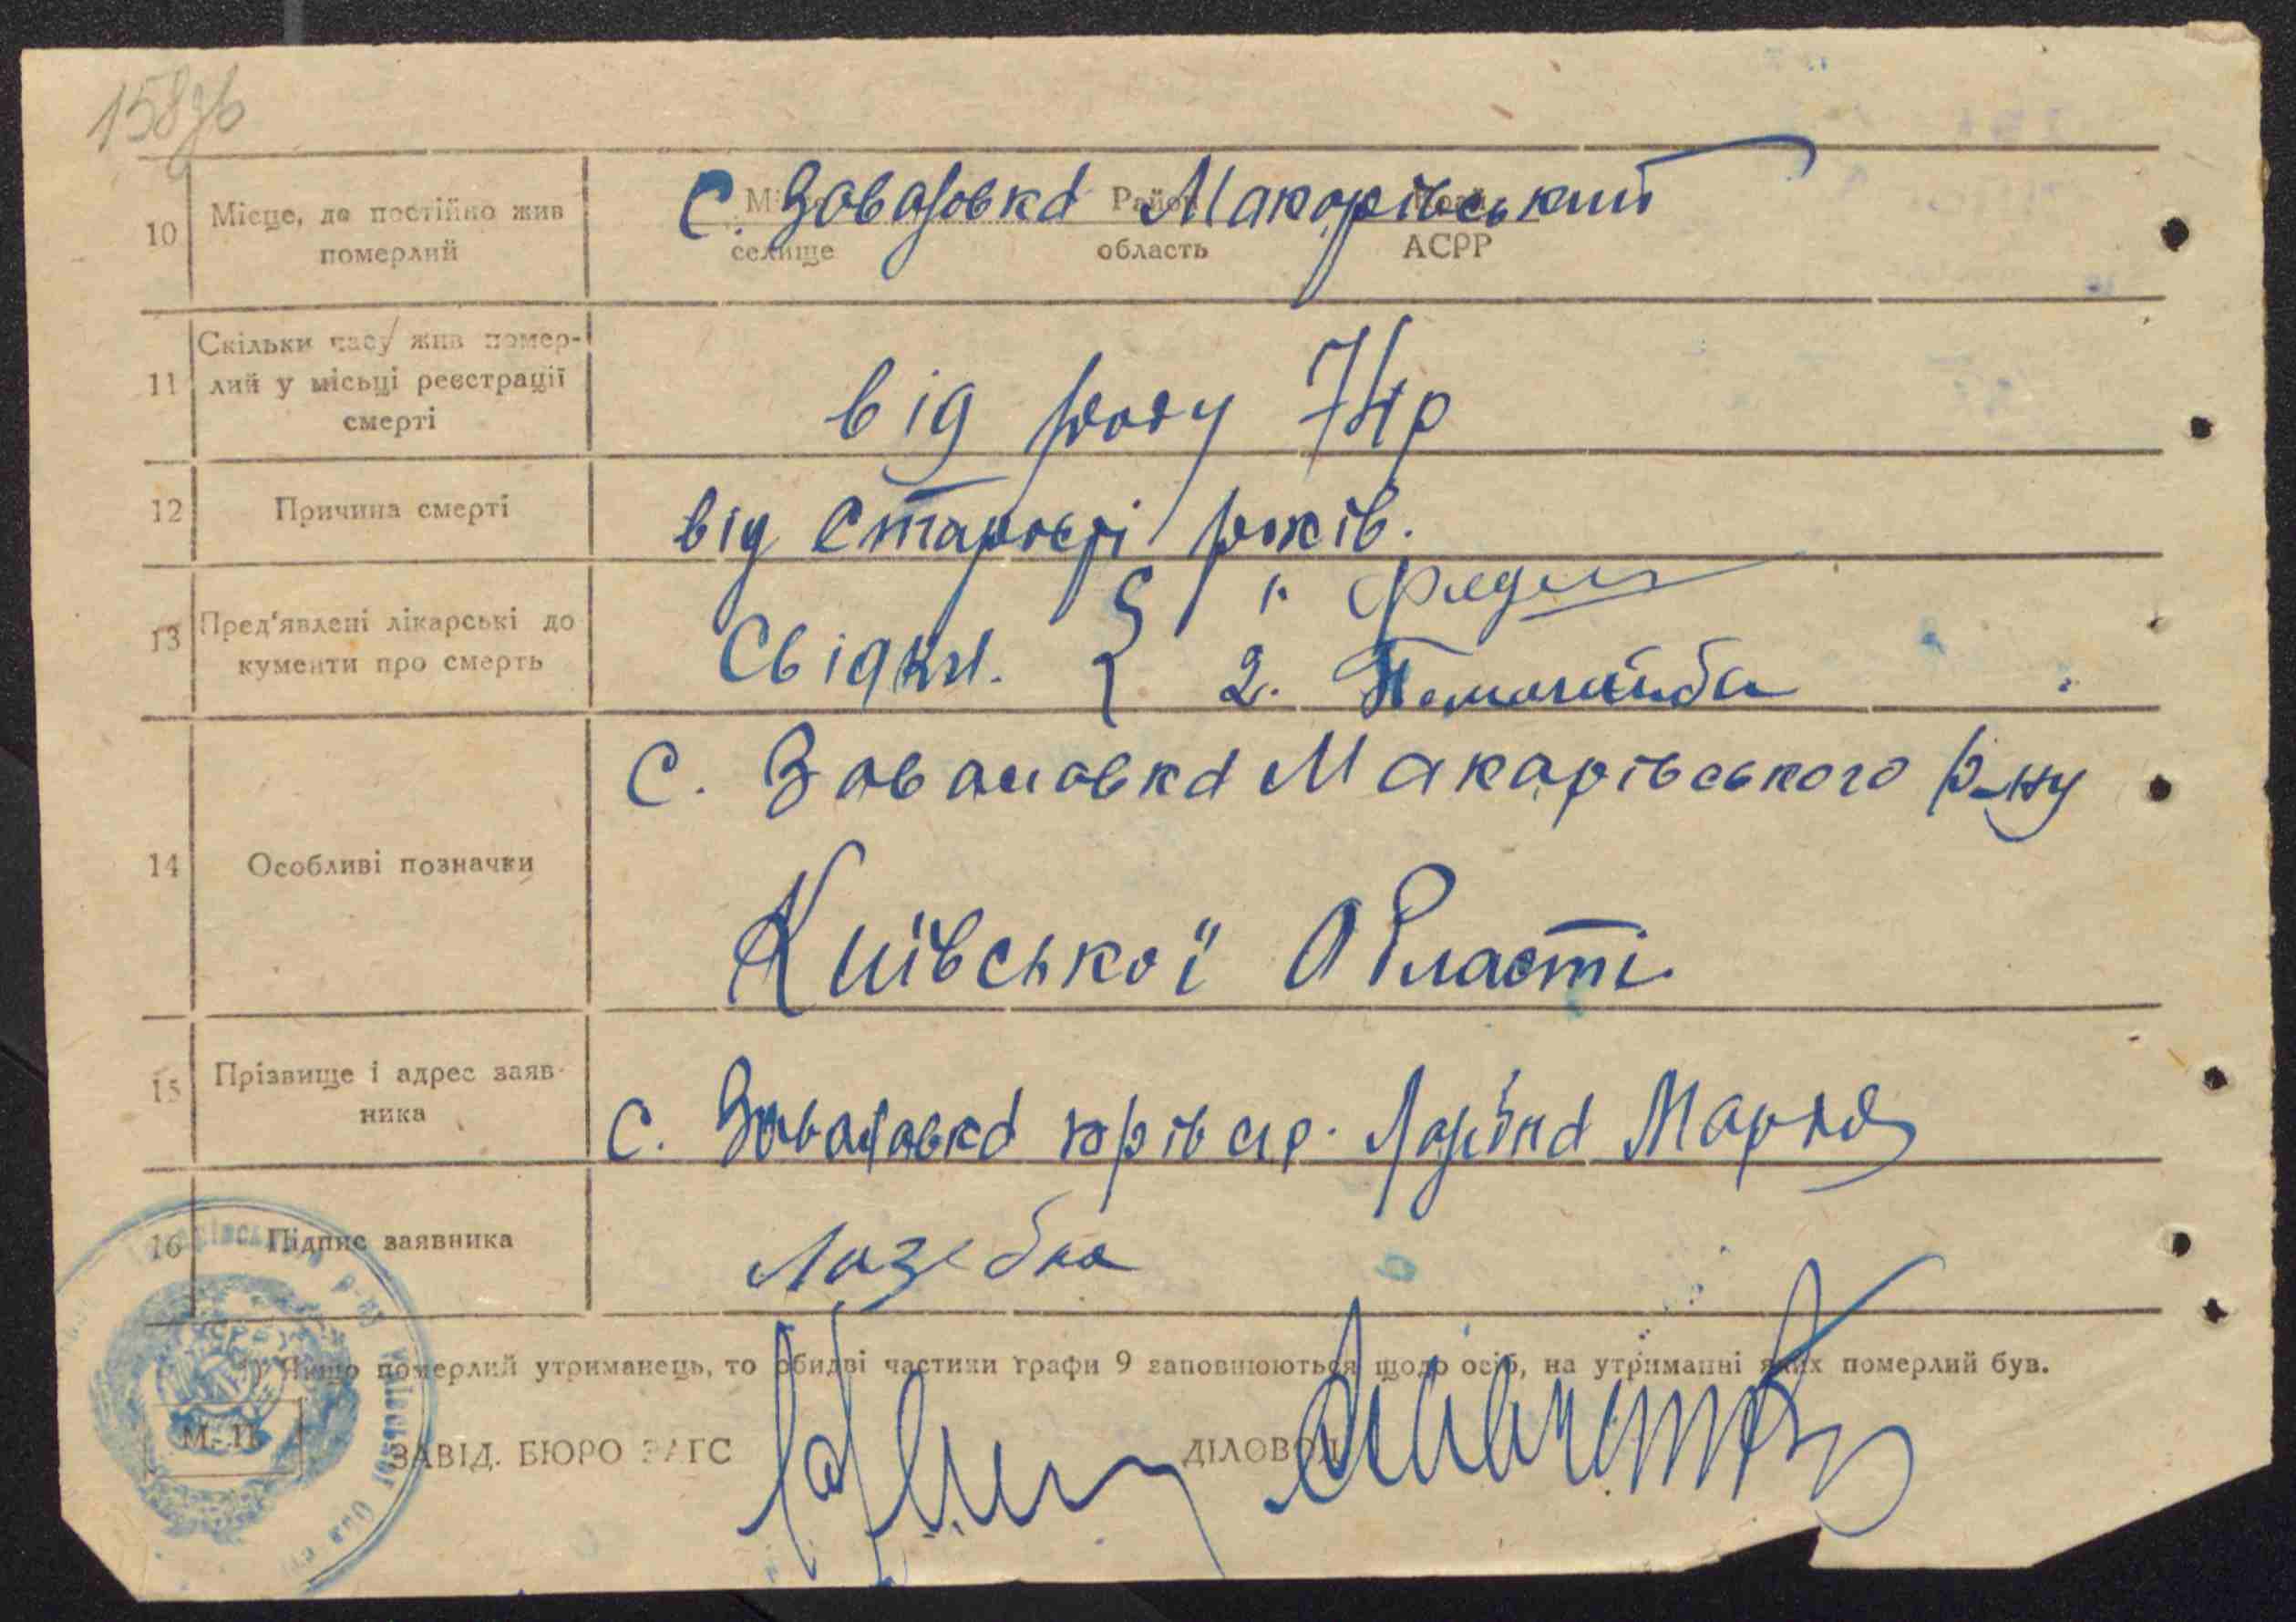 158
10 Місце, де постійно жив
померлий
с. Заваловка Макарівський
Район
селище область АСРР
11 Скільки часу жив помер-
лий у місьці реєстрації
смерті
від роду 74 р
12 Причина смерті
від старості років.
13 Пред'явлені лікарські до
кументи про смерть
Свідки. 1.
2.
14 Особливі позначки
С. Заваловка Макарівського р-ну
Київської Області
15 Прізвище і адрес заяв-
ника
с. Заваловка Марія
16 Підпис заявника
Лазебна
1) Якщо померлий утриманець, то обидві частини графи 9 заповнюються щодо осіб, на утриманні яких померлий був.
М. П.
ЗАВІД. БЮРО ЗАГС ДІЛОВОД